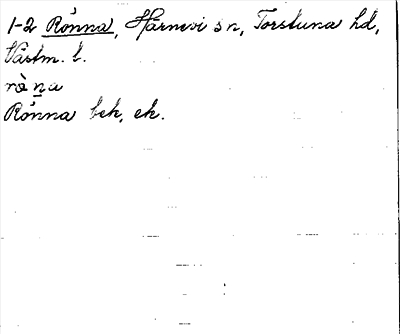 1-2 Rönna, Härnevi sn, Torstuna hd,
Västm. l.
rǜna
Rönna bek, ek.